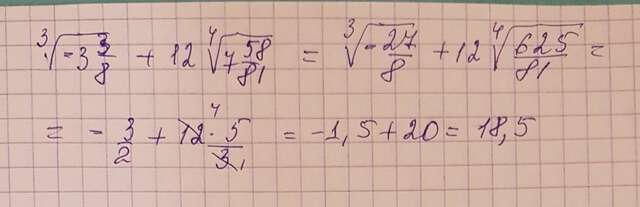 ∛(-3 3/8) + 12 ∜(7 58/81) = ∛(-27/8) + 12 ∜(625/81) =
= - 3/2 + 12⁴ · 5/3₁ = -1,5 + 20 = 18,5